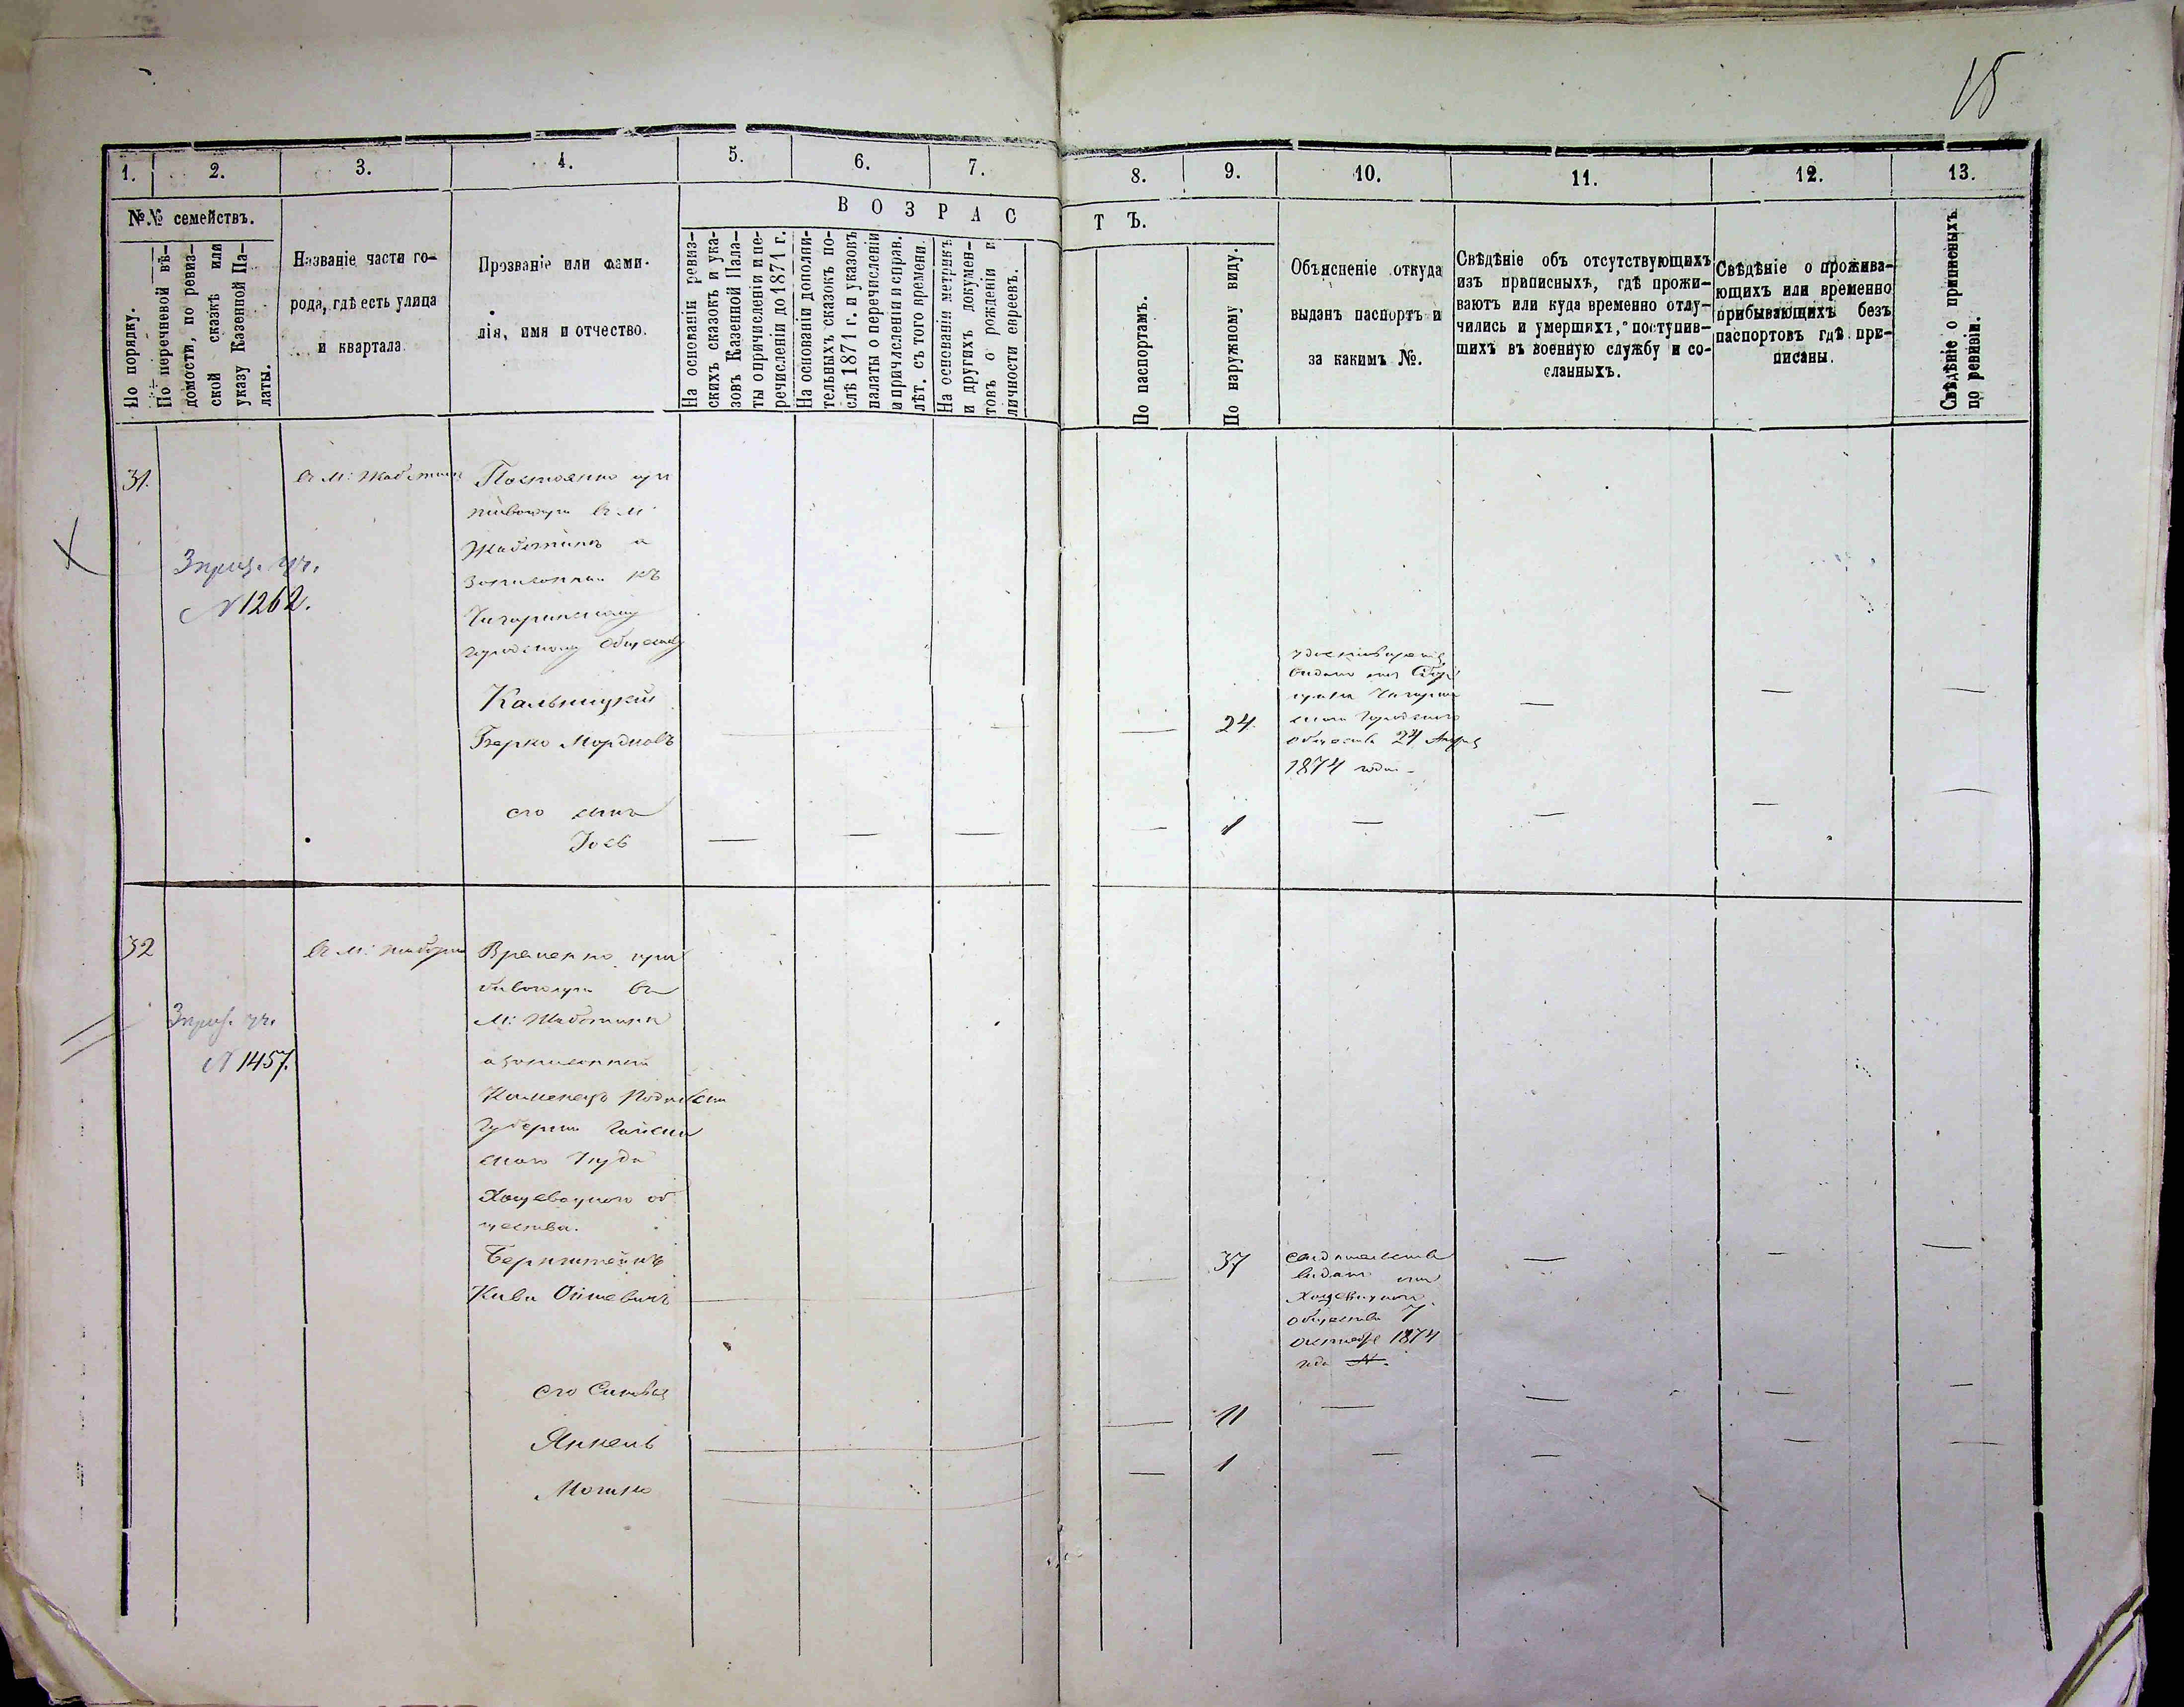 15
1. 2. 3. 4. 5. 6. 7. 8. 9. 10. 11. 12. 13.
№№ семействъ.
По порядку.
По перечневой вѣ-
домости, по ревиз-
ской сказкѣ или
указу Казенной Па-
латы.
Названіе части го-
рода, гдѣ есть улица
и квартала.
Прозваніе или фами-
лія, имя и отчество.
ВОЗРАСТЪ.
На основаніи ревиз-
скихъ сказокъ и ука-
зовъ Казенной Пала-
ты о причисленіи и пе-
речисленіи до 1871 г.
На основаніи дополни-
тельныхъ сказокъ по-
слѣ 1871 г. и указовъ
палаты о перечисленіи
и причисленіи и справ.
лѣт. съ того времени.
На основаніи метрикъ
и другихъ докумен-
товъ о рожденіи и
личности евреевъ.
По паспортамъ.
По наружному виду.
Объясненіе откуда
выданъ паспортъ и
за какимъ №.
Свѣдѣніе объ отсутствующихъ
изъ приписныхъ, гдѣ прожи-
ваютъ или куда временно отлу-
чились и умершихъ, поступив-
шихъ въ военную службу и со-
сланныхъ.
Свѣдѣніе о прожива-
ющихъ или временно
прибывающихъ безъ
паспортовъ гдѣ при-
писаны.
Свѣдѣніе о приписныхъ
по ревизіи.
31.
№ 1262.
в м: Жаботинѣ
Постоянно при
живающи в м:
Жаботинѣ а
записанни къ
Чигиринскому
городскому обществу
Кальницкій
Берко Мордковъ
24.
выдано
Чигирин
ского городского
общества 24
1874 года
его сынъ
Іось
1
32
№ 1457.
в м:
Временно при
бивающи в
м: Жаботинѣ
а записанний
Каменецъ Подольской
губернии Гайсин
ского уезда
Хощеватского об
щества.
Бернштейнъ
Кива Ойшевичъ
37
свидетельство
видано от
Хощеватского
общества 7
октября 1874
года №
его Синовья
Янкель
11
Мошко
1